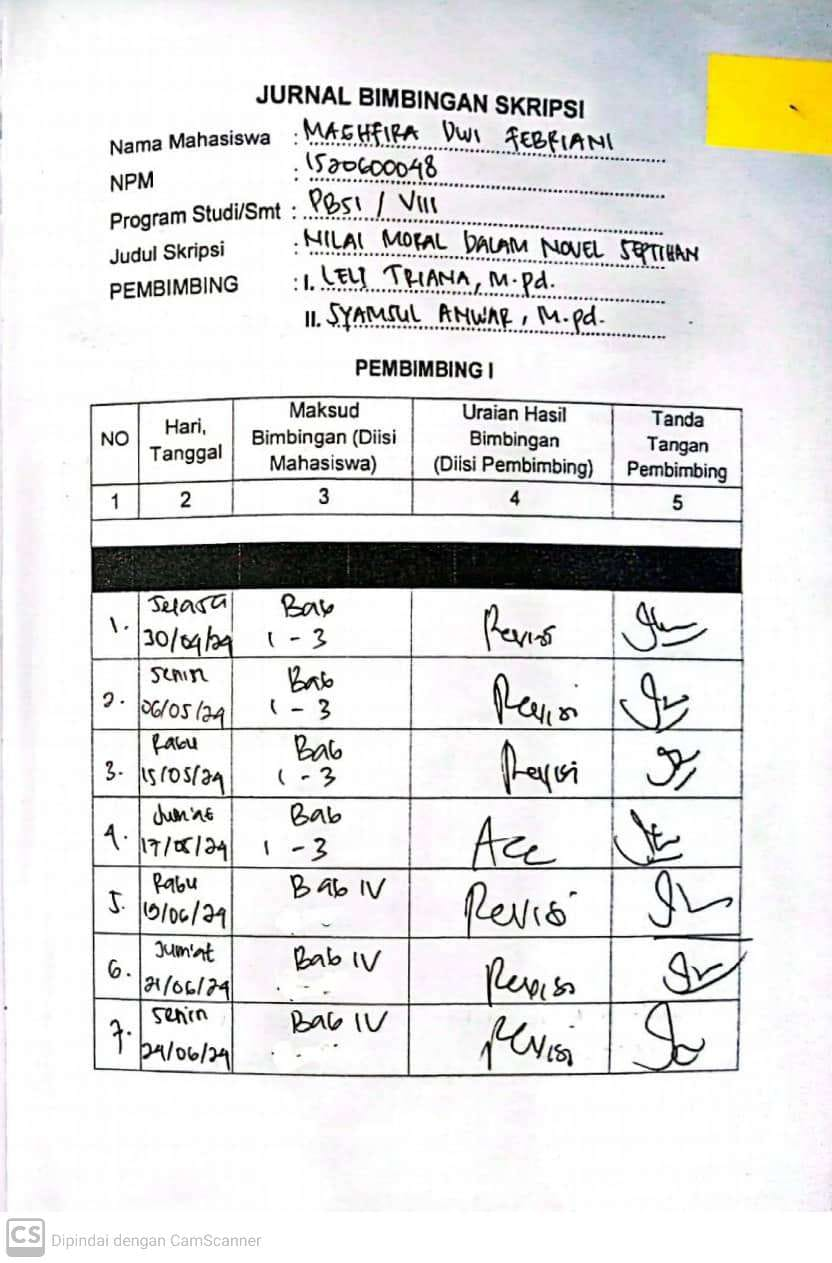 JURNAL BIMBINGAN SKRIPSI
Nama Mahasiswa : MAGHFIRA DWI FEBRIANI
NPM : 1520600048
Program Studi/Smt : PBSI / VIII
Judul Skripsi : NILAI MORAL DALAM NOVEL SEPTIHAN
PEMBIMBING : I. LELI TRIANA, M.pd.
II. SYAMSUL ANWAR, M.pd.
PEMBIMBING I
NO Hari, Tanggal Maksud Bimbingan (Diisi Mahasiswa) Uraian Hasil Bimbingan (Diisi Pembimbing) Tanda Tangan Pembimbing
1 2 3 4 5
1. Selasa 30/04/24 Bab 1 - 3 Revisi
2. Senin 06/05/24 Bab 1 - 3 Revisi
3. Rabu 15/05/24 Bab 1 - 3 Revisi
4. Jum'at 17/05/24 Bab 1 - 3 Acc
5. Rabu 19/06/24 Bab IV Revisi
6. Jum'at 21/06/24 Bab IV Revisi
7. Senin 24/06/24 Bab IV Revisi
CS Dipindai dengan CamScanner